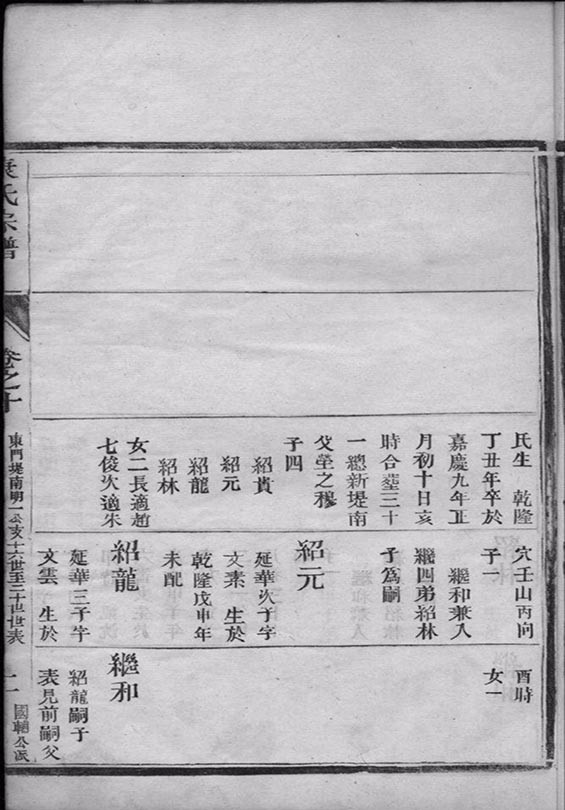 民生　乾隆
丁丑年卒於
嘉慶九年正
月初十日亥
時合塟三十
一總新堤南
父塋之穆
子四
紹貴
紹元
紹龍
紹林
女二長適趙
七俊次適朱
穴壬山丙向
子一
繼和兼入
繼四弟紹林
子爲嗣
紹元
延華次子字
文素　生於
乾隆戊申年
未配
紹龍
延華三子字
文雲　生於
酉時
女一
繼和
紹龍嗣子
表見前嗣父
氏宗譜
卷之十
東門堤南明一公亥十六世至二十世世表
國輔公派